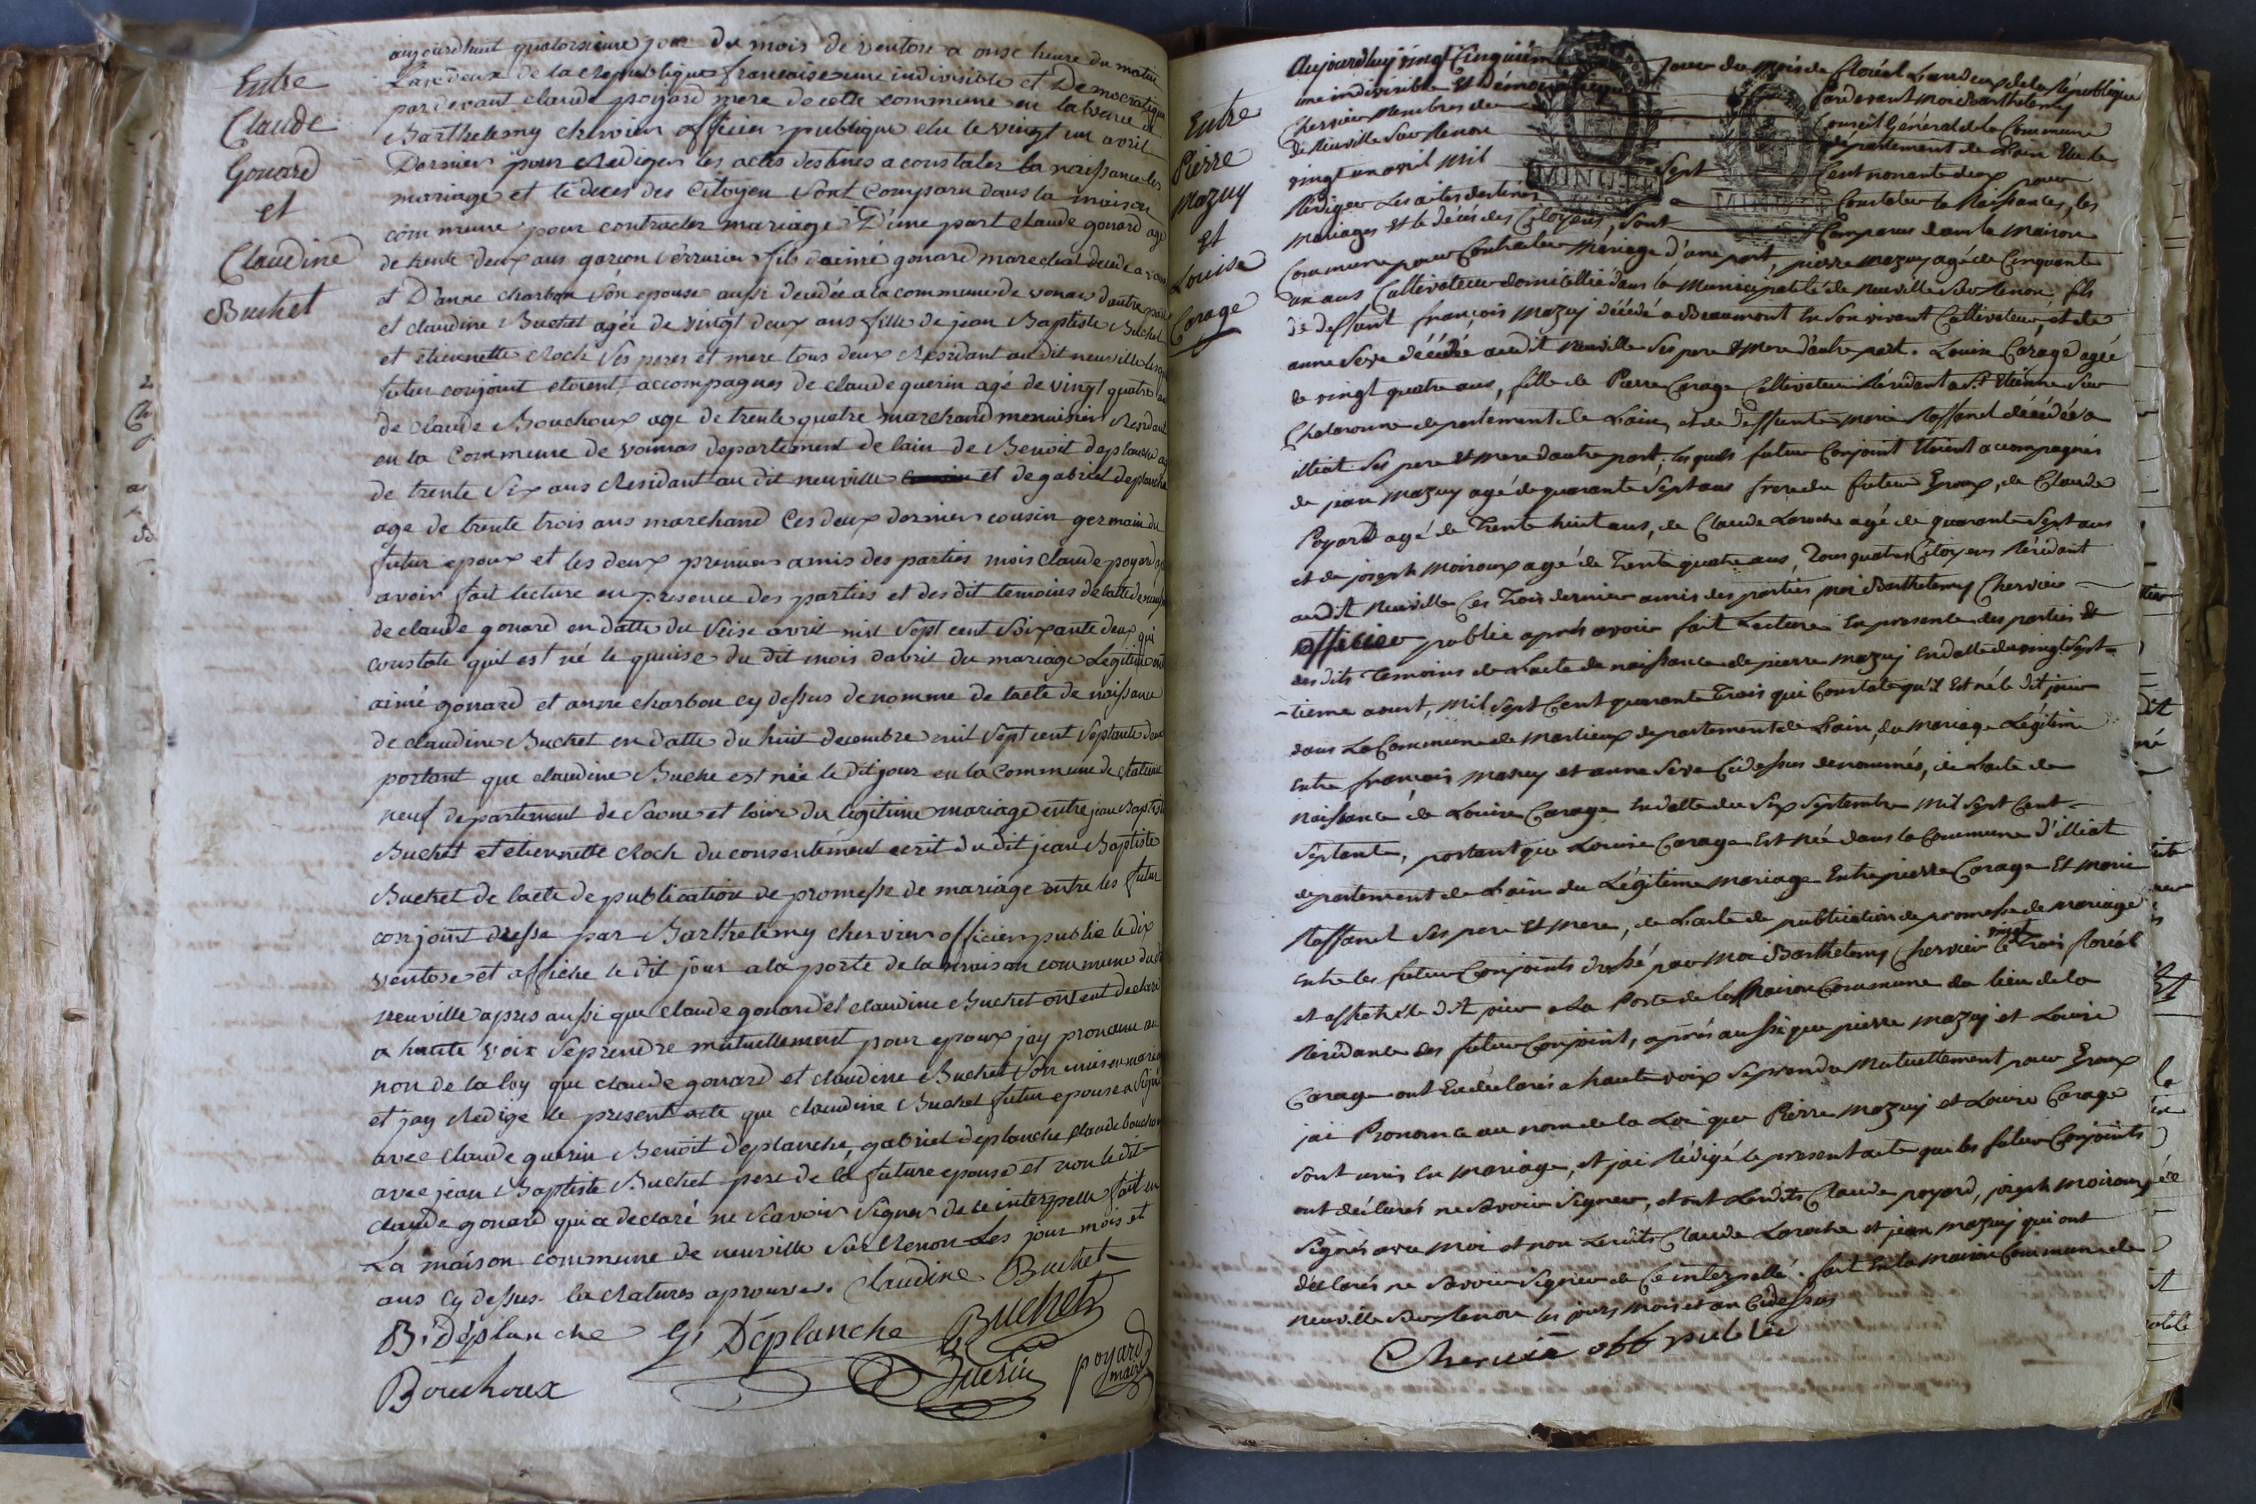 Entre
Claude
Gonard
et
Claudine
Buchet
aujourdhuit quatorsieme jour du mois de ventose a onse heure du matin
Lan deux de la Republique francaise une indivisible et Democratique
pardevant claude poyard mere de cette commune en labsence de
Barthelemy chervier officier publique elu le vingt un avril
Dernier pour Rediger les actes destinés a constater la naissance les
mariage et le deces des Citoyen sont Comparu dans la maison
commune pour contracter mariage D'une part claude gonard agé
de trente deux ans garçon serrurier fils daimé gonard marechal
et D'anne charbon son epouse aussi decedée a la commune de vonnas dautre part
et claudine Buchet agée de vingt deux ans fille de jean Baptiste Buchet
et etiennette Roch ses peres et mere tous deux Residant au dit neuville
futur conjoint etoient accompagnes de claude guerin agé de vingt quatre ans
de claude Bouchoux age de trente quatre marchand menuisier Residant
en la Commune de vonnas departement de lain de Benoit deplanche
de trente six ans Residant au dit neuville et de gabriel deplanche
age de trente trois ans marchand Ces deux dernier cousin germain du
futur epoux et les deux premier amis des parties mois claude poyard
avoir fait lecture en presence des parties et des dit temoins de lacte de
de claude gonard en datte du seise avril mil sept cent soixante deux qui
constate quil est né le quinse du dit mois davril du mariage Legitime
aimé gonard et anne charbon cy dessus denomme de lacte de naissance
de claudine Buchet en datte du huit decembre mil sept cent septante
portant que claudine Buche est née le dit jour en la commune de chateau
neuf departement de Saone et loire du legitime mariage entre jean Baptiste
Buchet et etiennette Roch du consentement ecrit du dit jean Baptiste
Buchet de lacte de publication de promesse de mariage entre les futur
conjoint dresse par Barthelemy chervier officier public le dix
ventose et affiche le dit jour a la porte de la maison commune du dit
neuville apres aussi que claude gonard et claudine Buchet ont eut declaré
a haute voix se prendre mutuellement pour epoux jay prononcé au
non de la loy que claude gonard et claudine Buchet son unis en mariage
et jay Redige le present acte que claudine Buchet futur epouse a signé
avec claude guerin Benoit deplanche, gabriel deplanche claude bouchoux
avec jean Baptiste Buchet pere de la future epouse et non le dit
claude gonard qui a declaré ne scavoir signer de ce interpelle fait en
La maison commune de neuville sur Renon Les jour mois et
ans cy dessus. la Rature aprouver. claudine Buchet
B. Déplanche G. Déplanche Buchet
Bouchoux Guerin poyard
maire
Entre
Pierre
Mazuy
et
Louise
Carage
Aujourdhuy vingt Cinquième Jour du mois de floréal Landeux de la République
une indivisible et Démocratique Pardevant Moi Barthelemy
Chervier Membres du Conseil Général de la Commune
de Neuville sur Renon département de Lain Elu le
vingt un avril Mil Sept Cent nonante deux pour
Rédiger Les actes destinés a Constater les Naissances, les
Mariages et le décès des Citoyens, sont Comparus dans la Maison
Commune pour Contracter Mariage d'une part pierre Mazuy agé de Cinquante
un ans, Cultivateur domicillié dans la Municipalité de Neuville sur Renon, fils
de deffunt françois Mazuy décédé a Beaumont En son vivant Cultivateur, et de
anne Seve décédée audit Neuville Ses pere et Mere d'autre part. Louise Carage agée
de vingt quatre ans, fille de Pierre Carage Cultivateur Résidant a St Etienne sur
Chalaronne departement de Lain, et de deffunte Marie Roffanel décédée a
illiat Ses pere et Mere dautre part, lesquels futur Conjoint Etoient accompagnés
de jean Mazuy agé de quarante Sept ans frere du futur Epoux, de Claude
Poyard agé de Trente huit ans, de Claude Laroche agé de quarante Sept ans
et de joseph Moiroux agé de Trente quatre ans, Tous quatre Citoyens Résidant
audit Neuville Ces Trois dernier amis des parties, moi Barthelemy Chervier
officier public après avoir fait Lecture En presence des parties et
des dits Temoins de Lacte de naissance de pierre mazuy En datte du vingt Sept-
-tieme aoust, Mil Sept Cent quarante Trois qui Constate qu'il Est né le dit jour
dans La Commune de Marlieux departement de Lain, du Mariage Légitime
Entre françois Mazuy et anne Seve Cidessus denommés, de Lacte de
Naissance de Louise Carage En datte du Six Septembre Mil Sept Cent
Septante, portant que Louise Carage Est Née dans la Commune d'illiat
departement de Lain du Légitime Mariage Entre pierre Carage Et Marie
Roffanel Ses pere Et Mere, de Lacte de publication de promesse de Mariage
Entre les futur Conjoints dressé par Moi Barthelemy Chervier le vingt Trois floréal
et affiché le dit jour a La Porte de la Maison Commune du lieu de la
Résidance des futur Conjoint, après aussi que pierre Mazuy et Louise
Carage ont Eu declarés a haute voix Se prendre Mutuellement pour Epoux
jai Prononcé au nom de la Loi que Pierre Mazuy et Louise Carage
Sont unis En Mariage, et jai Rédigé le present acte que les futur Conjoints
ont déclarés ne Savoir Signer, et ont Lesdits Claude poyard, joseph Moiroux
Signés avec Moi et non Lesdits Claude Laroche et jean Mazuy qui ont
déclarés ne Savoir Signer de Ce interpellé. fait En la Maison Commune de
Neuville sur Renon les jours Mois et an Cidessus
Chervier off public